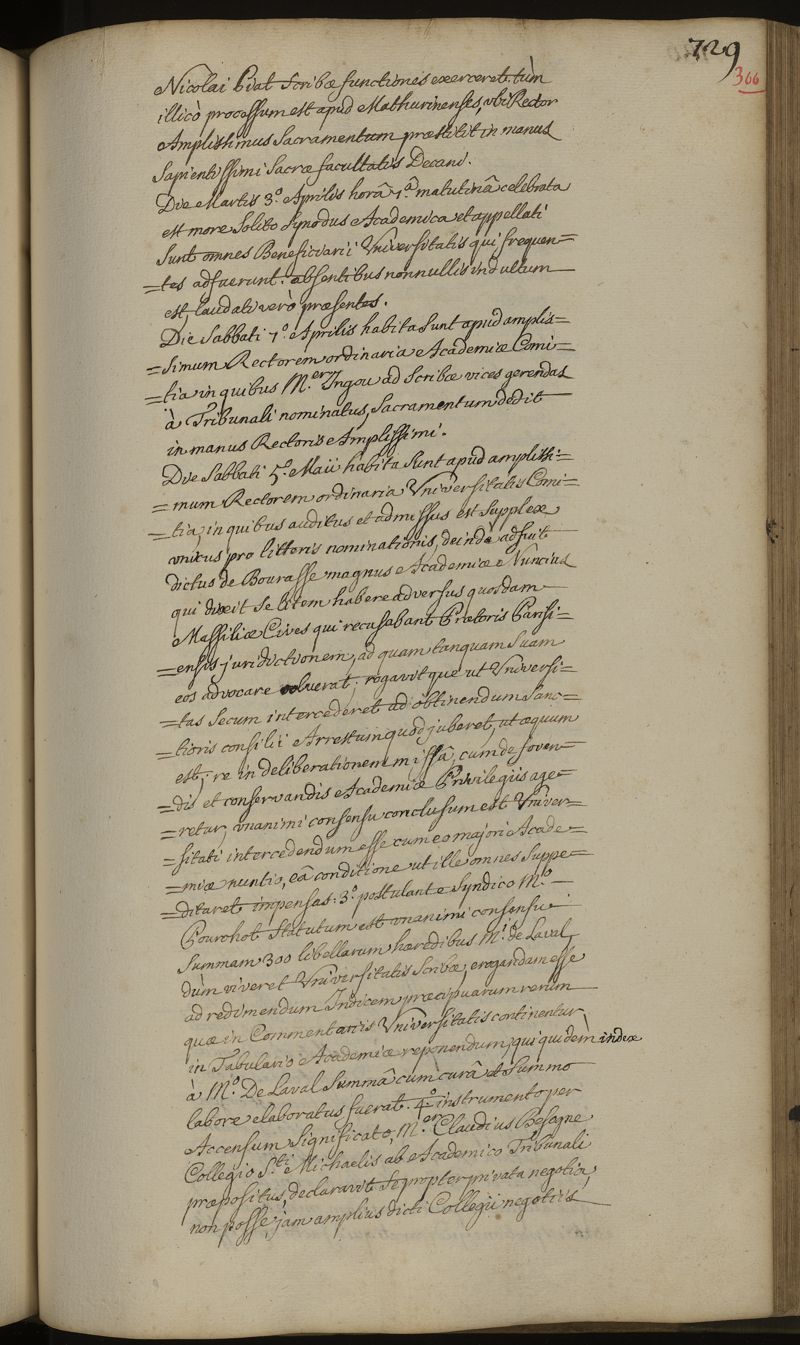 729
366
Nicolai Piat Scribæ functiones exerceret. tùm
illicò processum est apud Mathurinenses, ubi Rector
Amplissimus Sacramentum præstitit in manus
Sapientissimi Sacræ facultatis Decani.
Die Martis 3.º Aprilis horâ 7.ª matutinâ celebrata
est more Solito Synodus Academica et appellati
Sunt omnes Beneficiarii Universitatis qui frequen=
=tes adfuerunt. absentibus nonnullis indultum
est, laudati verò præsentes.
Die Sabbati 7.º Aprilis habita Sunt apud amplis=
=simum Rectorem ordinaria Academiæ Comi=
=tia in quibus M.er Ingou ad Scribæ vices gerendas
à Tribunali nominatus, Sacramentum dedit
in manus Rectoris Amplissimi.
Die Sabbati 5.º Maii habita Sunt apud amplissi=
=mum Rectorem ordinaria Universitatis Comi=
=tia, in quibus auditus et admissus est Supplex
unicus pro litteris nominationis, deinde adfuit
dictus de Bourasse magnus Academiæ Nuncius
qui dixit Se litem habere adversus quosdam
Massiliæ Cives qui recusabant Prætoris Parisi=
=ensis juridictionem, ad quam tanquam Suam
eos advocare voluerat; rogavitque ut Universi=
=tas Secum intercederet ad obtinendum Sanc=
=tioris consilii Arrestum quod juberet, ut æquum
est; re in deliberationem missâ, cum de foven=
=dis et conservandis Academiæ Privilegiis age=
=retur, unanimi consensu conclusum est Univer=
=sitati intercedendum esse cum eo majori Acade=
=miæ nuntio, eâ conditione ut ille omnes Suppe=
=ditaret impensas: 3.º postulante Syndico M.º
Pourchot Statutum est unanimi consensu
Summam 300 libellarum hæredibus M.i de Laval,
dùm viveret Universitatis Scribæ, erogandam esse
ad redimendum Indicem præcipuarum rerum
quæ in Commentariis Universitatis continentur
in Tabulario Academiæ reponendum, qui quidem index
à M.º De Laval Summâ cum curâ et Summo
labore elaboratus fuerat. 4.º instrumento per
Accensum Significato, M.er Claudius Besogne
Collegio S.ti Michaelis ab Academico Tribunali
præpositus, declaravit Se propter privata negotia,
non posse, jàm amplius dicti Collegii negotiis